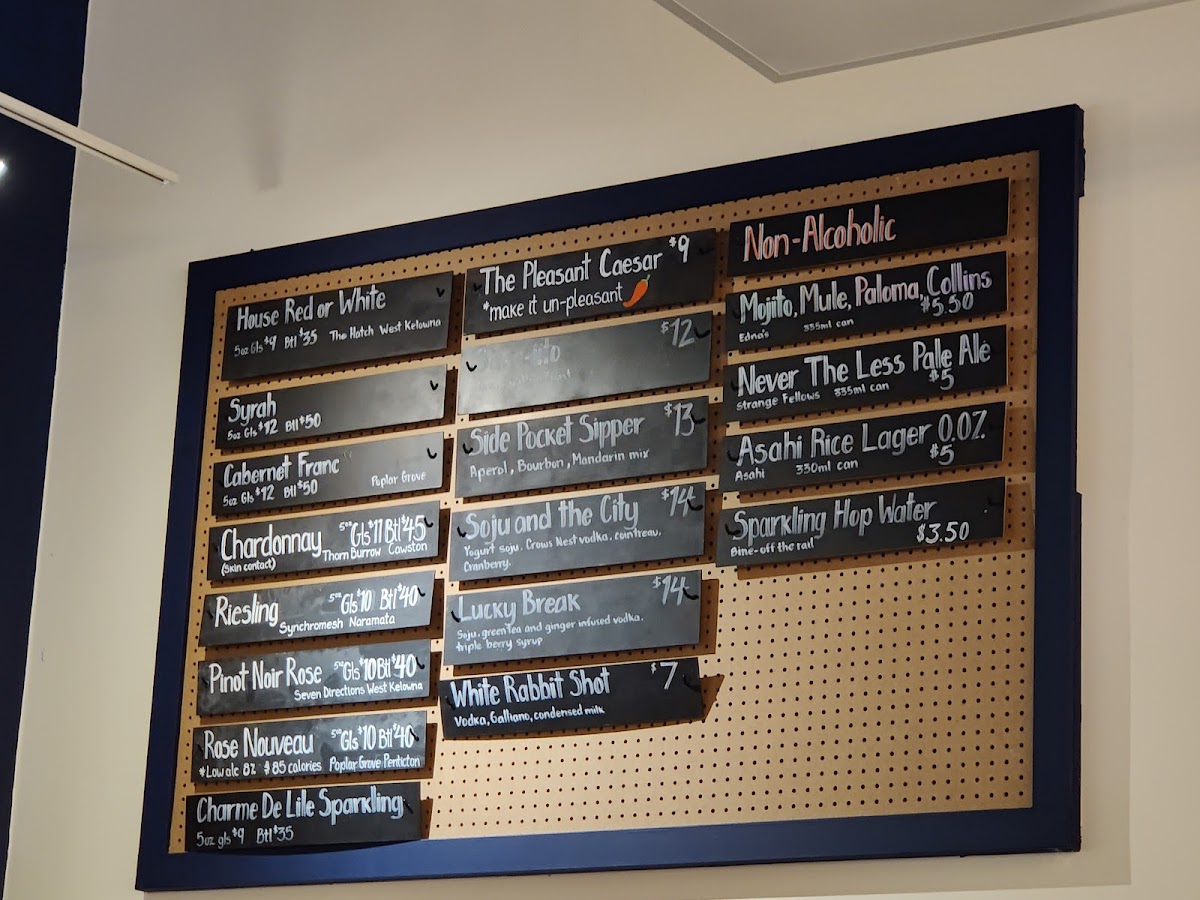 House Red or White
5oz Gls $9 Btl $35 The Hatch West Kelowna
Syrah
5oz Gls $12 Btl $50
Cabernet Franc
5oz Gls $12 Btl $50 Poplar Grove
Chardonnay 5oz Gls $11 Btl $45
(Skin contact) Thorn Burrow Cawston
Riesling 5oz Gls $10 Btl $40
Synchromesh Naramata
Pinot Noir Rose 5oz Gls $10 Btl $40
Seven Directions West Kelowna
Rose Nouveau 5oz Gls $10 Btl $40
*Low alc 8% & 85 calories Poplar Grove Penticton
Charme De Lille Sparkling
5oz gls $9 Btl $35
The Pleasant Caesar $9
*make it un-pleasant
$12
Side Pocket Sipper $13
Aperol, Bourbon, Mandarin mix
Soju and the City $14
Yogurt Soju, Crows Nest vodka, cointreau,
Cranberry.
Lucky Break $14
Soju, green tea and ginger infused vodka,
triple berry syrup
White Rabbit Shot $7
Vodka, Galliano, condensed milk
Non-Alcoholic
Mojito, Mule, Paloma, Collins
Edna's 355ml can $5.50
Never The Less Pale Ale
Strange Fellows 355ml can $5
Asahi Rice Lager 0.0%
Asahi 330ml can $5
Sparkling Hop Water
Bine-off the rail $3.50